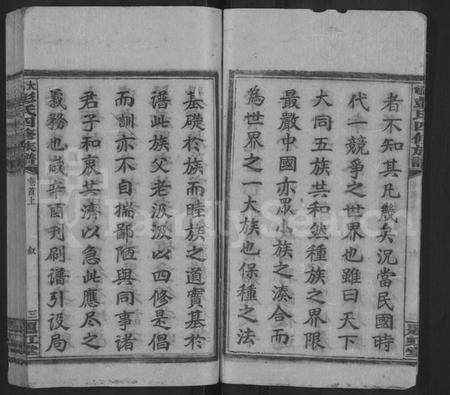 者不知其凡幾矣況當民國時
代一競爭之世界也雖曰天下
大同五族共和然種族之界限
最嚴中國亦眾小族之湊合而
為世界之一大族也保種之法
基礎於族而睦族之道實基於
譜此族父老汲汲以四修是倡
而訓亦不自揣鄙陋與同事諸
君子和衷共濟以急此應尽之
義務也歲辛酉刋刷譜引設局
大彭氏四修族譜
卷首上
叙
三
FamilySearch